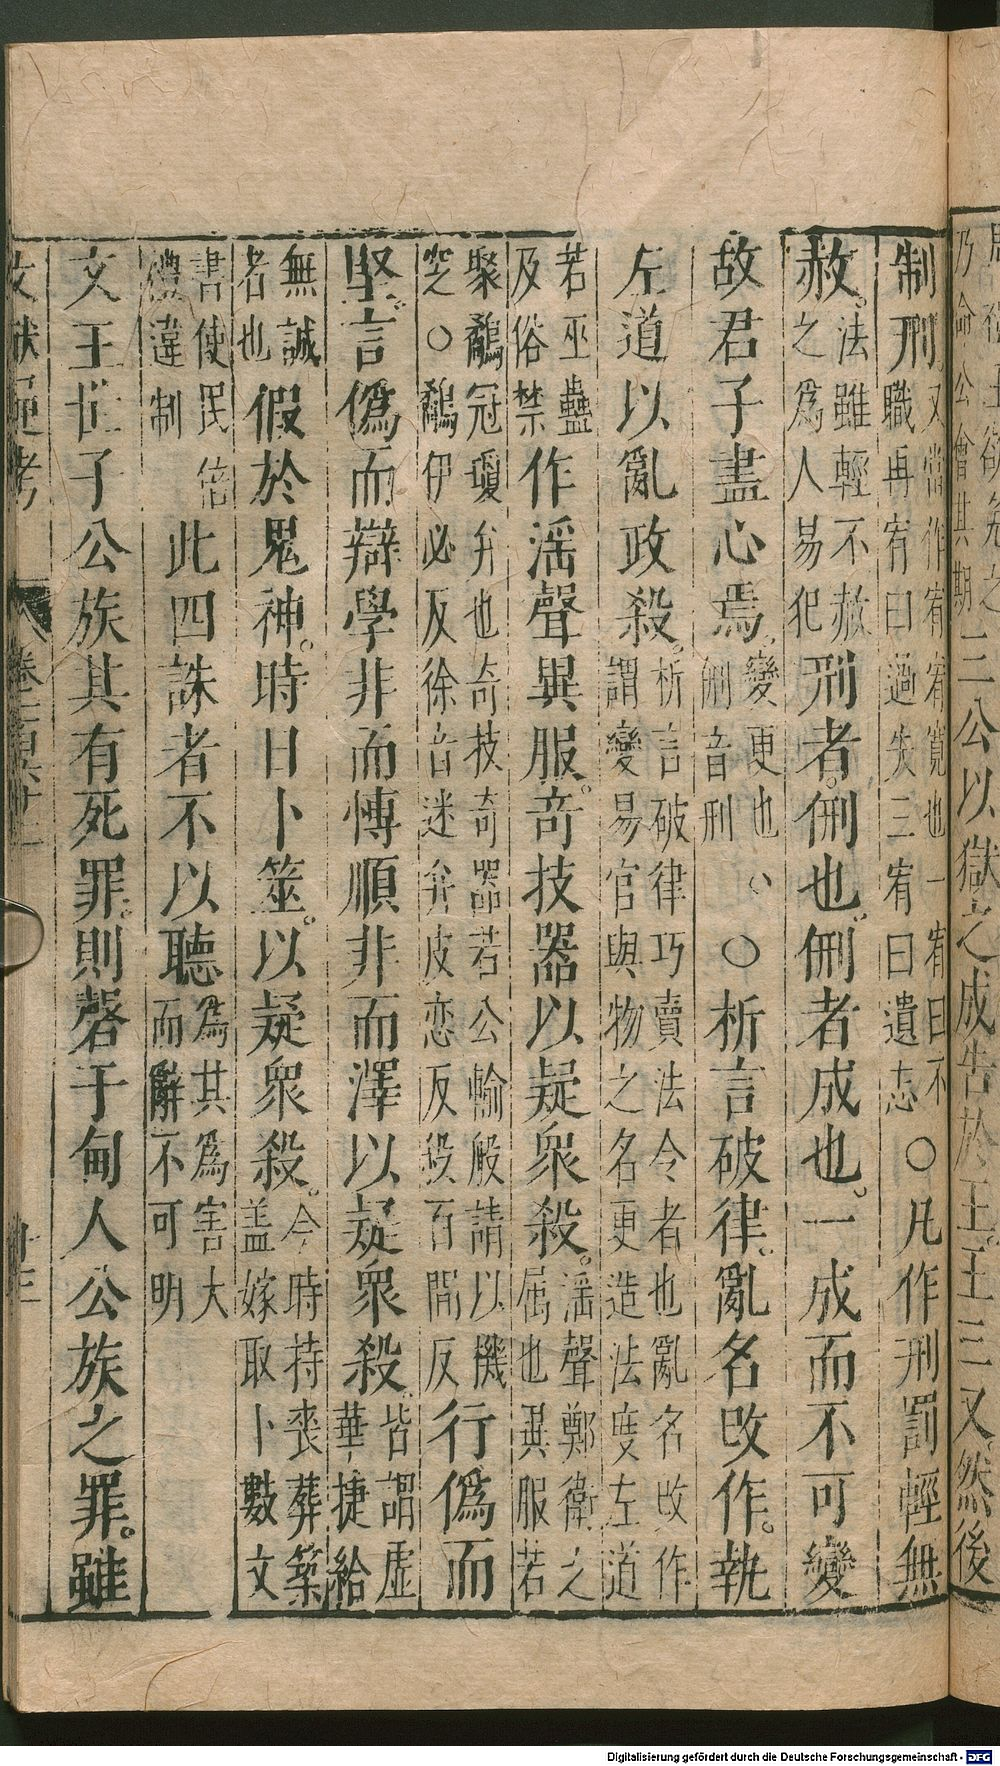 周禮王欲免之
乃命公會其期
三公以獄之成告於王王三又然後
制刑又當作宥宥寛也一宥曰不
職再宥曰過失三宥曰遺志○凡作刑罰輕無
赦法雖輕不赦
之為人易犯刑者侀也侀者成也一成而不可變
故君子盡心焉變更也
侀音刑○析言破律亂名改作執
左道以亂政殺析言破律巧賣法令者也亂名改作
謂變易官與物之名更造法度左道
若巫蠱
及俗禁作淫聲異服奇技器以疑衆殺淫聲鄭衛之
屬也異服若
聚鷸冠瓊弁也奇技奇器若公輸般請以機
窆○鷸伊必反徐音迷弁皮恋反殺百間反行偽而
堅言偽而辯學非而愽順非而澤以疑衆殺皆謂虛
華捷給
無誠
者也假於鬼神時日卜筮以疑衆殺今時持喪葬築
盖嫁取卜數文
書使民倍
禮違制此四誅者不以聽為其為害大
而辭不可明
文王世子公族其有死罪則磬于甸人公族之罪雖
文獻通考
Digitalisierung gefördert durch die Deutsche Forschungsgemeinschaft - DFG